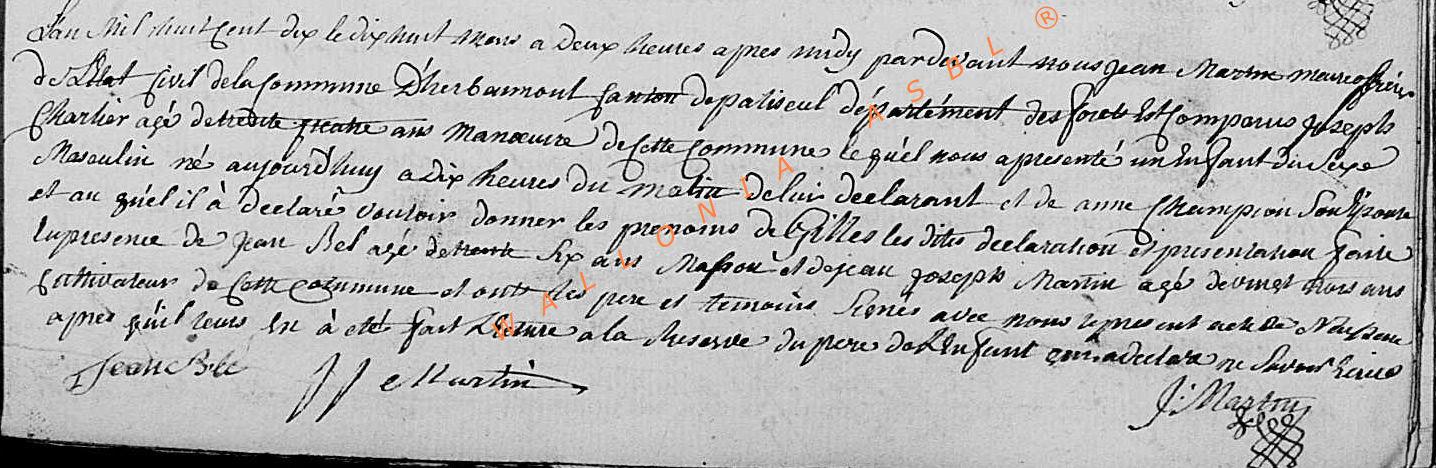 L'an Mil huit Cent dix le dix huit mars a deux heures apres midy pardevant nous Jean Martin maire officier
de L'Etat Civil de la Commune D'herbaumont Canton de paliseul département des forets Est Comparus Joseph
Charlier agé de trente quatre ans Manœuvre de Cette Commune le quel nous a presenté un Enfant du Sexe
Masculin né aujourd'huy a dix heures du matin de luis declarant et de anne Champion Son Epouse
et au quél il à declaré vouloir donner les prenoms de Gilles les dites declaration et presentation faite
En presence de Jean Bel agé de trente Six ans Masson et de jean joseph Martin agé de vingt trois ans
Cultivateur de Cette Commune et ont les pere et temoins Signés avec nous le present acte de Naissance
apres quil leurs En à eté fait Lecture a la Reserve du pere de L'Enfant qui a declaré ne Savoir Ecrire
Jean Bel
JJ Martin
J: Martin
WALLONIA ASBL ®